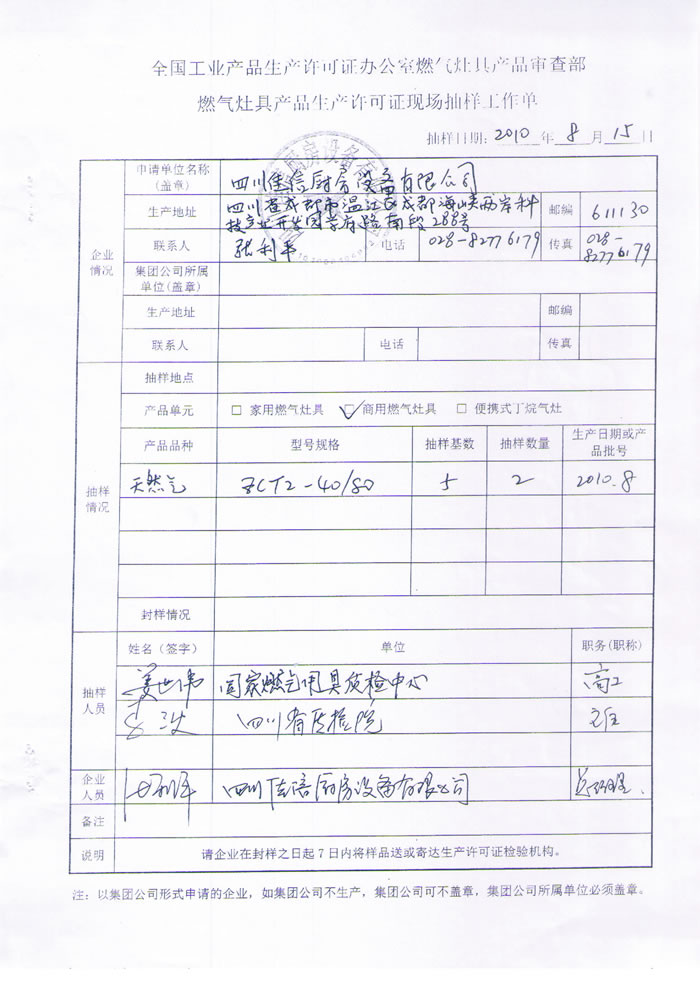 全国工业产品生产许可证办公室燃气灶具产品审查部
燃气灶具产品生产许可证现场抽样工作单
抽样日期: 2010 年 8 月 15 日
企业情况
申请单位名称(盖章) 四川佳信厨房设备有限公司
生产地址 四川省成都市温江区成都海峡两岸科技产业开发园学府路南段288号 邮编 611130
联系人 张利平 电话 028-82776179 传真 028-82776179
集团公司所属单位(盖章)
生产地址 邮编
联系人 电话 传真
抽样情况
抽样地点
产品单元 □ 家用燃气灶具 ☑ 商用燃气灶具 □ 便携式丁烷气灶
产品品种 型号规格 抽样基数 抽样数量 生产日期或产品批号
天然气 ZCT2-40/80 5 2 2010.8
封样情况
抽样人员
姓名(签字) 单位 职务(职称)
姜世伟 国家燃气用具质检中心 高工
四川省质检院 主任
企业人员 四川佳信厨房设备有限公司 总经理
备注
说明 请企业在封样之日起7日内将样品送或寄达生产许可证检验机构。
注: 以集团公司形式申请的企业, 如集团公司不生产, 集团公司可不盖章, 集团公司所属单位必须盖章。